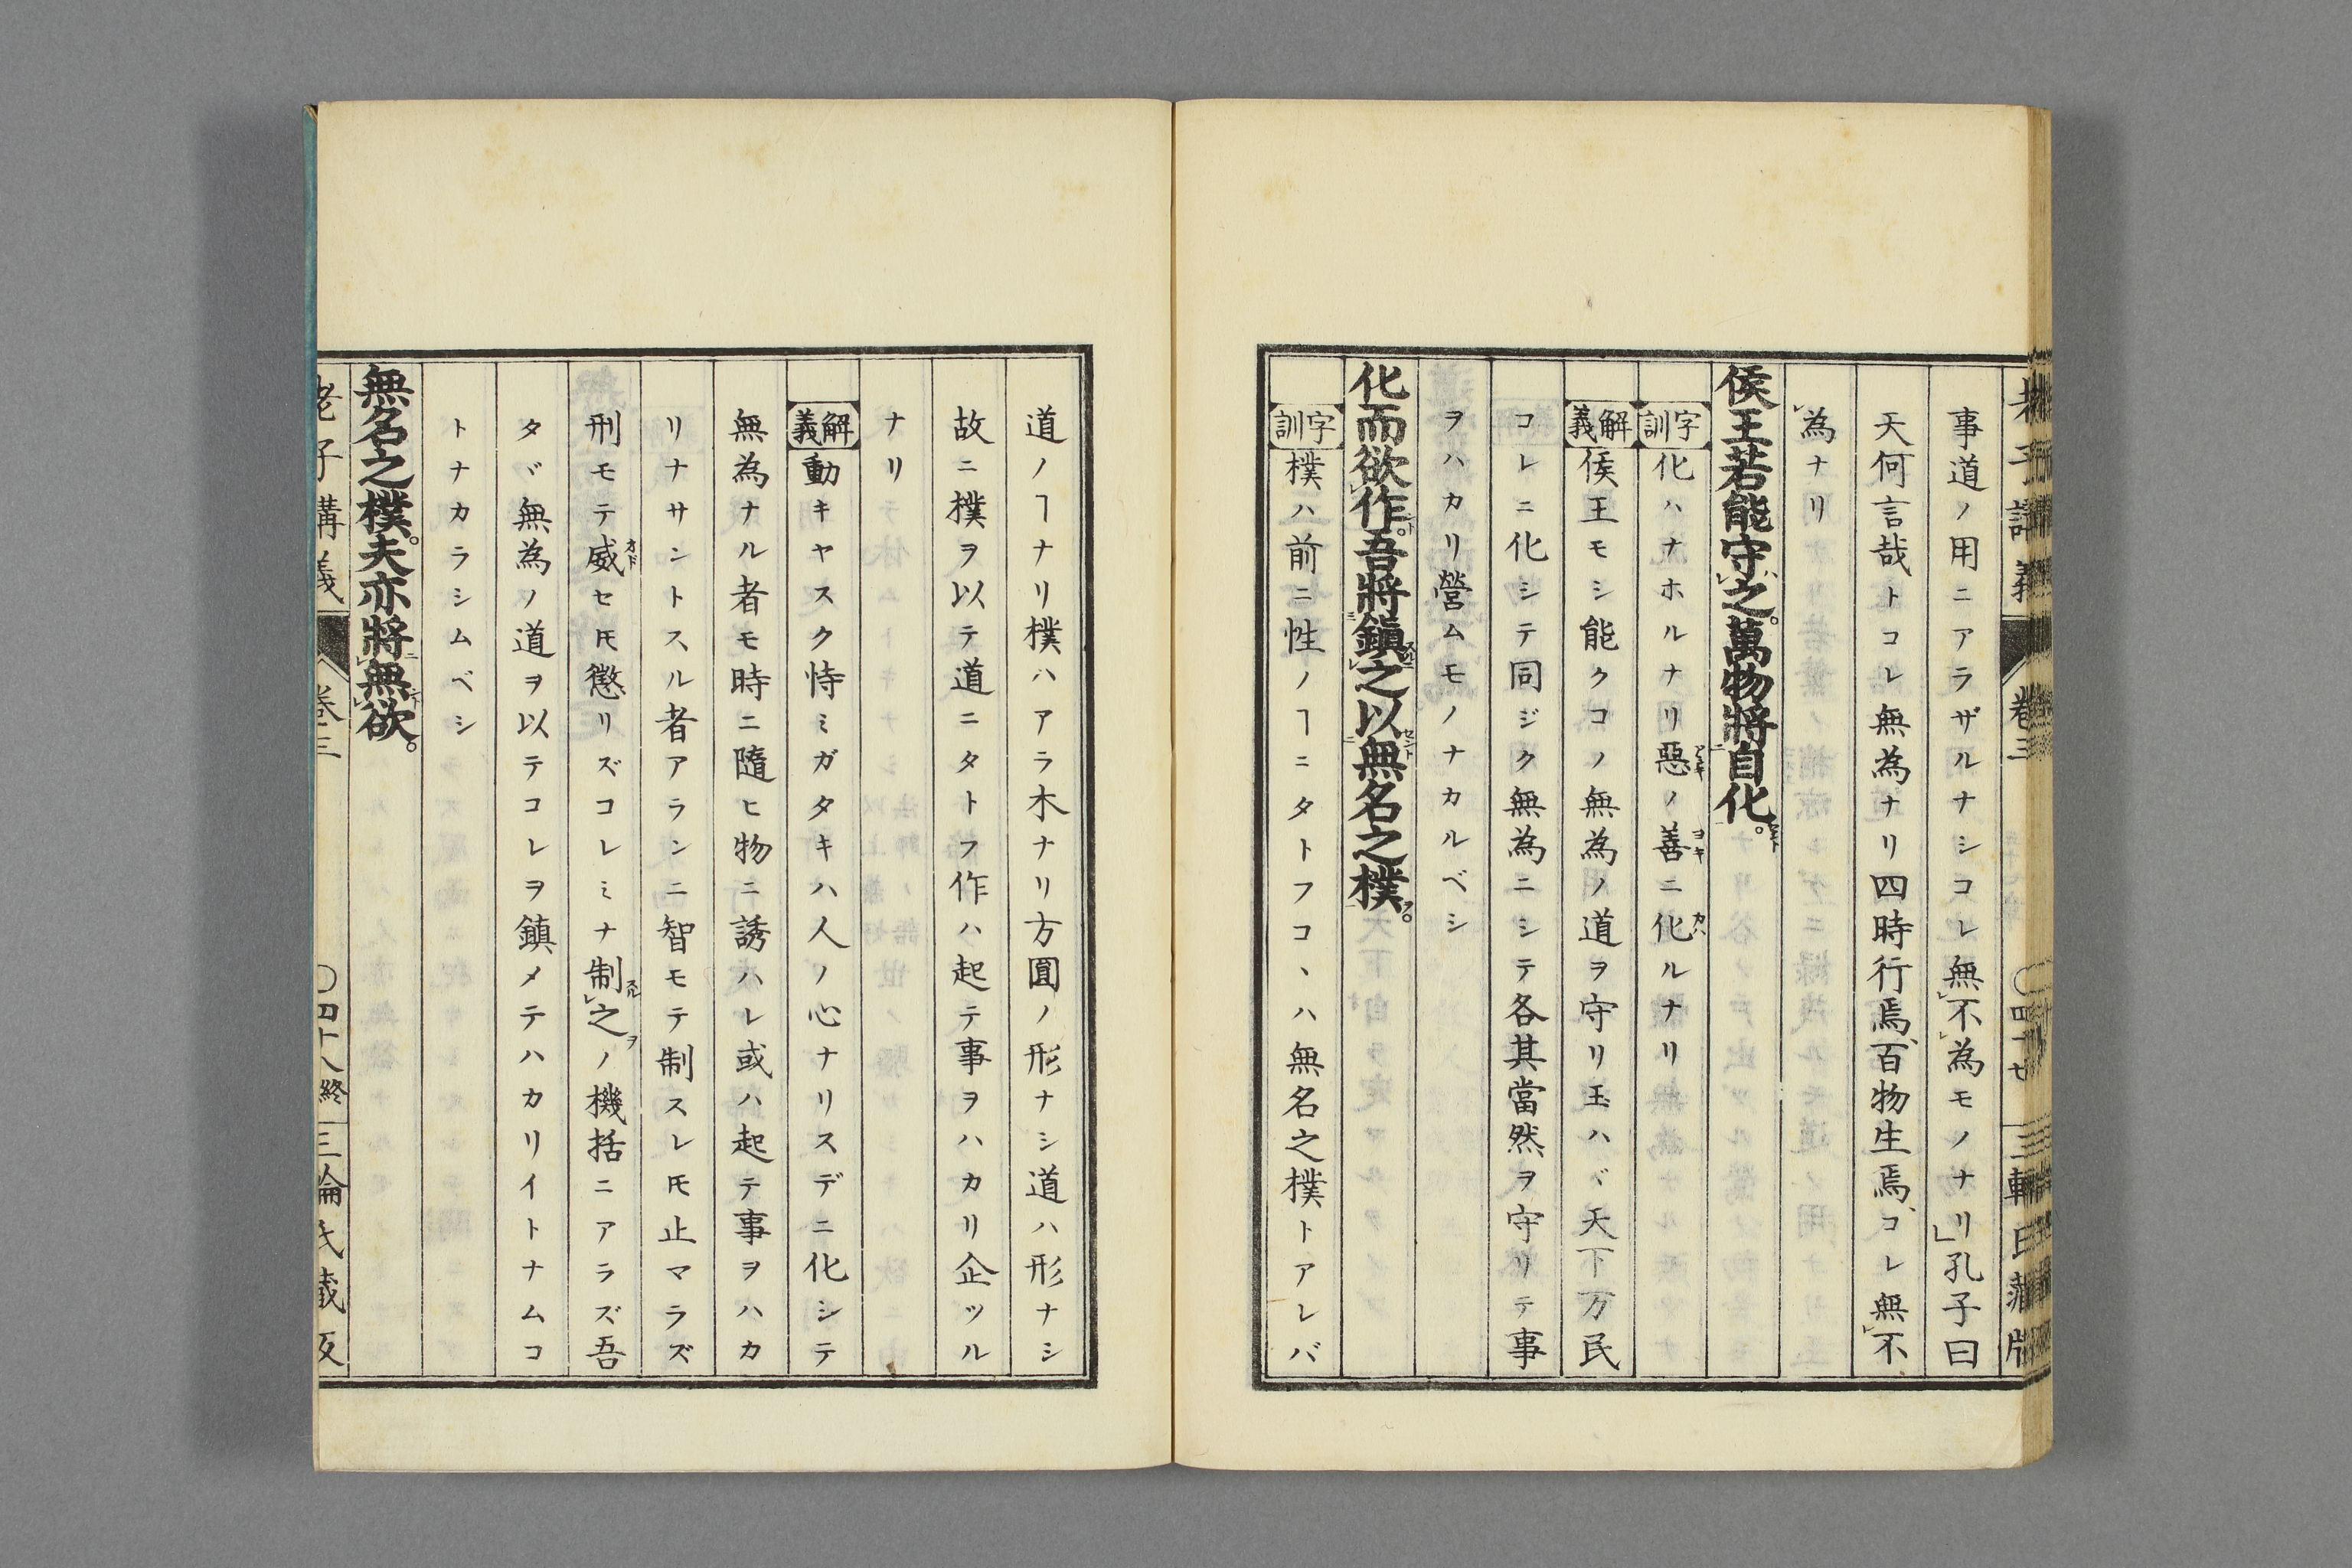 老子講義 巻三 〇四十七 三輪氏蔵版
事道ノ用ニアラザルナシコレ無不為モノナリ」孔子曰
天何言哉トコレ無為ナリ四時行焉、百物生焉、コレ無不
為ナリ
侯王若能守之。萬物將自化。
字訓 化ハナホルナリ惡ノ善ニ化ルナリ
解義 侯王モシ能クコノ無為ノ道ヲ守リ玉ハヾ天下万民
コレニ化シテ同ジク無為ニシテ各其當然ヲ守リテ事
ヲハカリ營ムモノナカルベシ
化而欲作。吾將鎭之以無名之樸。
字訓 樸ハ前ニ性ノヿニタトフコヽハ無名之樸トアレバ
道ノヿナリ樸ハアラ木ナリ方圓ノ形ナシ道ハ形ナシ
故ニ樸ヲ以テ道ニタトフ作ハ起テ事ヲハカリ企ツル
ナリ
解義 動キヤスク恃ミガタキハ人ノ心ナリスデニ化シテ
無為ナル者モ時ニ隨ヒ物ニ誘ハレ或ハ起テ事ヲハカ
リナサントスル者アランニ智モテ制スレ𪜈止マラズ
刑モテ威セ𪜈懲リズコレミナ制之ノ機括ニアラズ吾
タヾ無為ノ道ヲ以テコレヲ鎮メテハカリイトナムコ
トナカラシムベシ
無名之樸。夫亦將無欲。
老子講義 巻三 〇四十八終 三輪氏蔵版